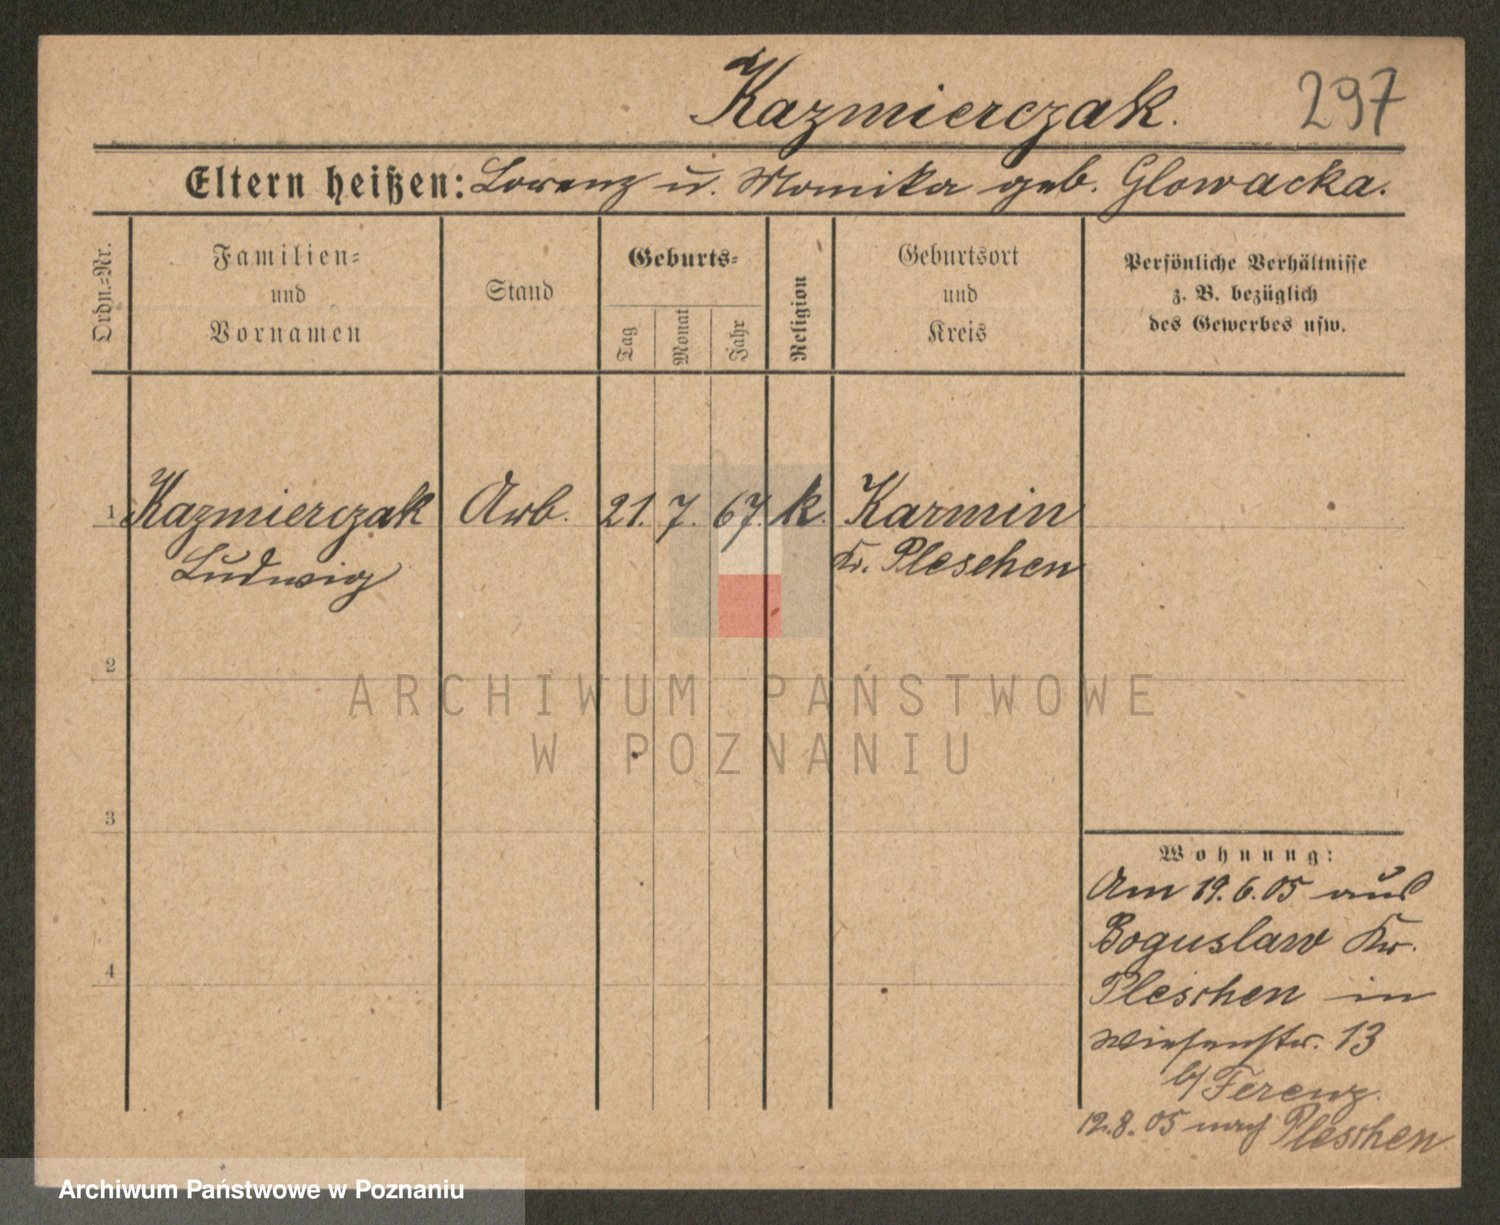 Kazmierczak.
297
Eltern heißen: Lorenz u. Monika geb. Glowacka.
Ordn.-Nr.
Familien-
und
Vornamen
Stand
Geburts-
Tag
Monat
Jahr
Religion
Geburtsort
und
Kreis
Persönliche Verhältnisse
z. B. bezüglich
des Gewerbes usw.
1 Kazmierczak Arb. 21. 7. 67. k. Karmin
Ludwig Kr. Pleschen
2
ARCHIWUM PAŃSTWOWE
W POZNANIU
3
Wohnung:
Am 19.6.05 aus
Boguslaw Kr.
4
Pleschen in
Wiesenstr. 13
b/ Ferenz.
12.8.05 nach Pleschen
Archiwum Państwowe w Poznaniu